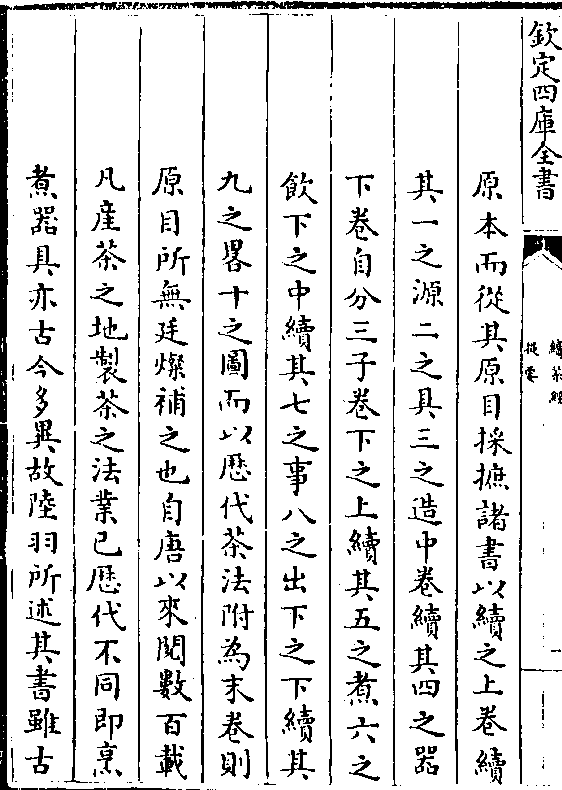 欽定四庫全書
續茶經
提要
一
原本而從其原目採摭諸書以續之上卷續
其一之源二之具三之造中卷續其四之器
下卷自分三子卷下之上續其五之煮六之
飲下之中續其七之事八之出下之下續其
九之畧十之圖而以歴代茶法附為末卷則
原目所無廷燦補之也自唐以來閱數百載
凡産茶之地製茶之法業已歴代不同即烹
煮器具亦古今多異故陸羽所述其書雖古